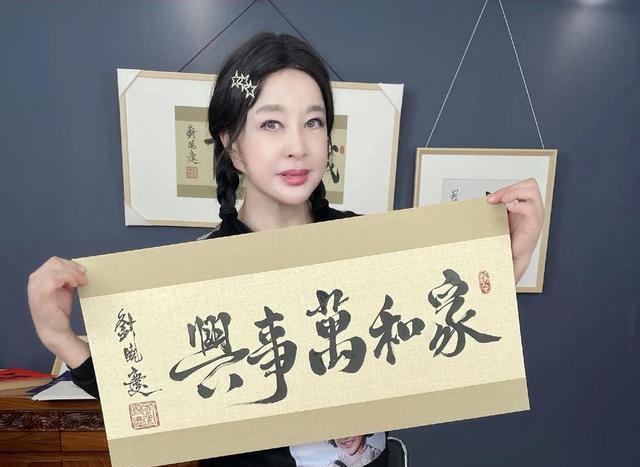 家和萬事興
劉曉慶
劉曉慶